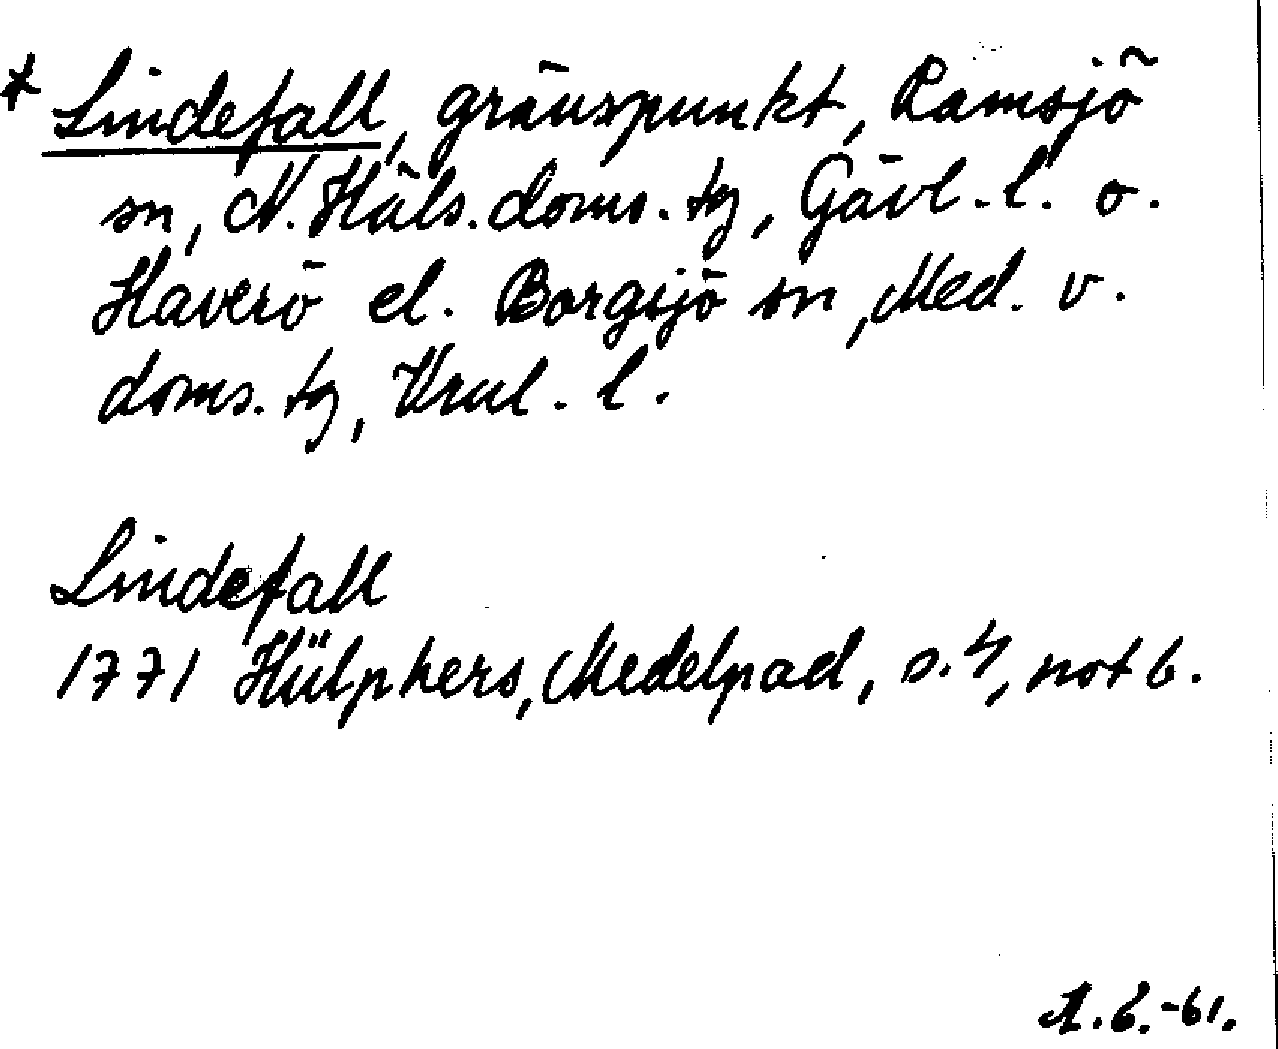 * Lindefall, gränspunkt, Ramsjö
sn, N. Häls. doms. tg, Gävl. l. o.
Haverö el. Borgsjö sn, Med. v.
doms. tg, Vnl. l.
Lindefall
1771 Hülphers, Medelpad, s. 4, not 6.
-61.